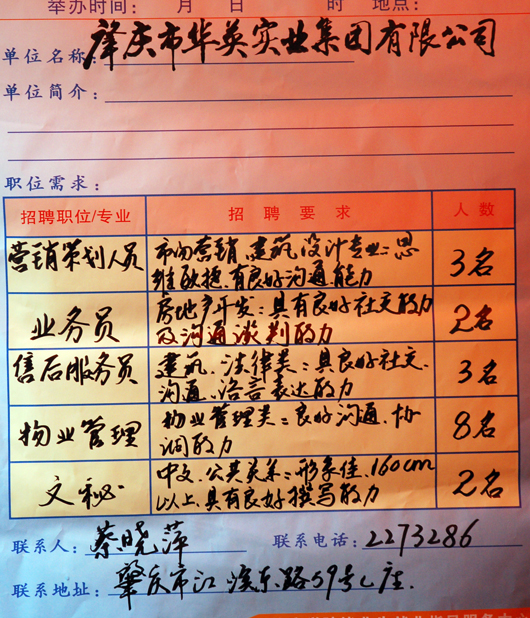 举办时间： 月 日 时 地点：
单位名称：肇庆市华英实业集团有限公司
单位简介：
职位需求：
招聘职位/专业 招聘要求 人数
营销策划人员 市场营销、建筑、设计专业：思 3名
维敏捷，有良好沟通能力
业务员 房地产开发：具有良好社交能力 2名
及沟通谈判能力
售后服务员 建筑、法律类：具良好社交、 3名
沟通、语言表达能力
物业管理 物业管理类：良好沟通、协 8名
调能力
文秘 中文、公共关系：形象佳，160cm 2名
以上，具有良好撰写能力
联系人：蔡晓萍 联系电话：2273286
联系地址：肇庆市江滨东路59号C座.